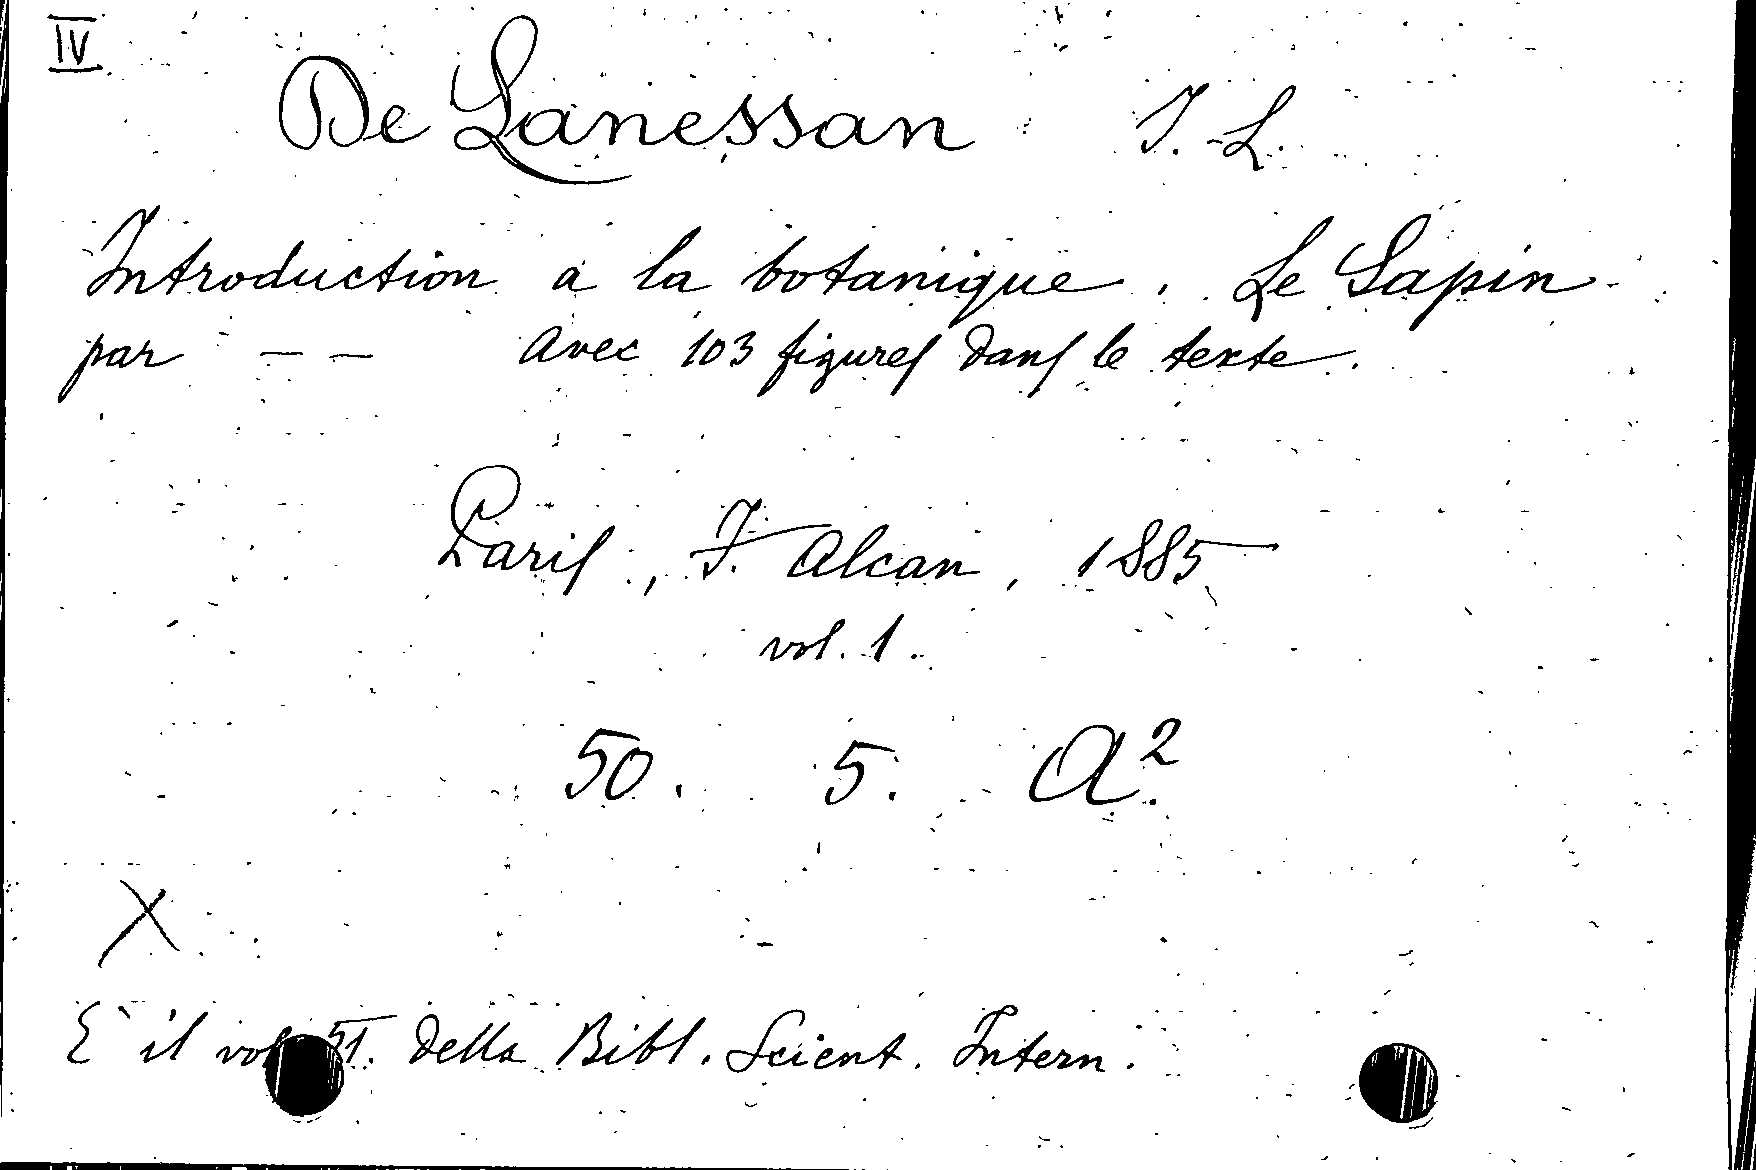 IV
De Lanessan J.-L.
Introduction a la botanique. Le Sapin
par — — Avec 103 figures dans le texte.
Paris, F. Alcan, 1885
vol. 1.
50. 5. A².
X
E' il vol. 51. della Bibl. Scient. Intern.